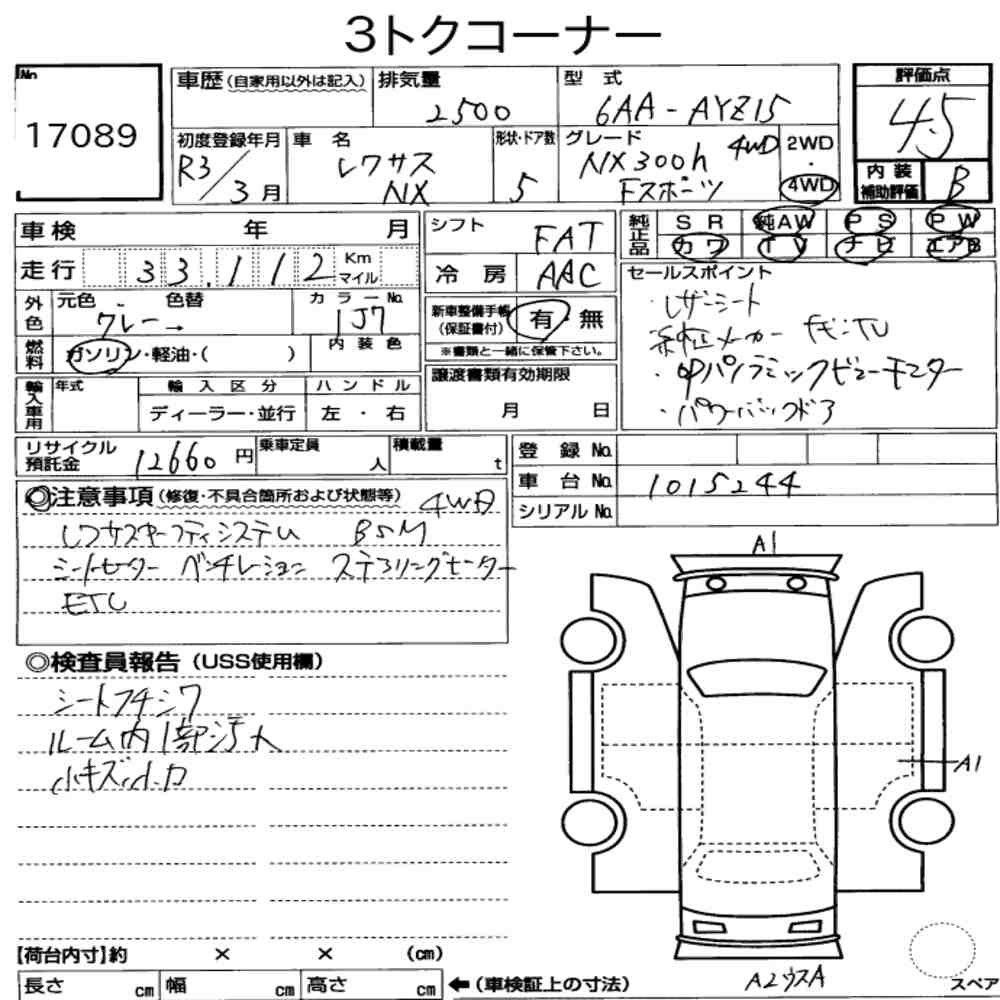 3トクコーナー
No.
17089
車歴(自家用以外は記入)
排気量
2500
型式
6AA-AYZ15
評価点
4.5
初度登録年月
R3/3月
車名
レクサス
NX
形状・ドア数
5
グレード
NX300h 4WD
Fスポーツ
2WD
・
4WD
内装
補助評価
B
車検 年 月
走行 33,112 Km
マイル
シフト
FAT
冷房
AAC
純正品
SR 純AW PS PW
カワ TV ナビ エアB
セールスポイント
・レザーシート
純正メーカー ナビTV
・パノラミックビューモニター
・パワーバックドア
外色
元色 色替
グレー→
カラーNo.
1J7
燃料
ガソリン・軽油・( )
内装色
新車整備手帳
(保証書付)
有・無
※書類と一緒に保管下さい。
輸入車用
年式
輸入区分
ディーラー・並行
ハンドル
左・右
譲渡書類有効期限
月 日
リサイクル
預託金
12660円
乗車定員
人
積載量
t
登録No.
車台No.
1015244
シリアルNo.
◎注意事項(修復・不具合箇所および状態等) 4WD
レクサスセーフティシステム BSM
シートヒーター ベンチレーション ステアリングヒーター
ETC
◎検査員報告(USS使用欄)
シートフチシワ
ルーム内1部汚れ
小キズ小凹
A1
A1
A2ウスA
スペア
【荷台内寸】約 × × (cm)
長さ cm 幅 cm 高さ cm ←(車検証上の寸法)